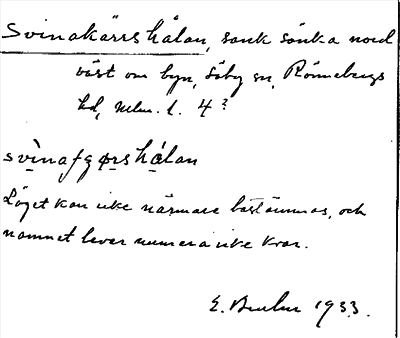 Svinakärrshålan, sank sänka nord
väst om byn, Säby sn, Rönnebergs
hd, Mlm. l. 4?
svinafgørshålan
Läget kan icke närmare bestämmas, och
namnet lever numera icke kvar.
E. 1933.